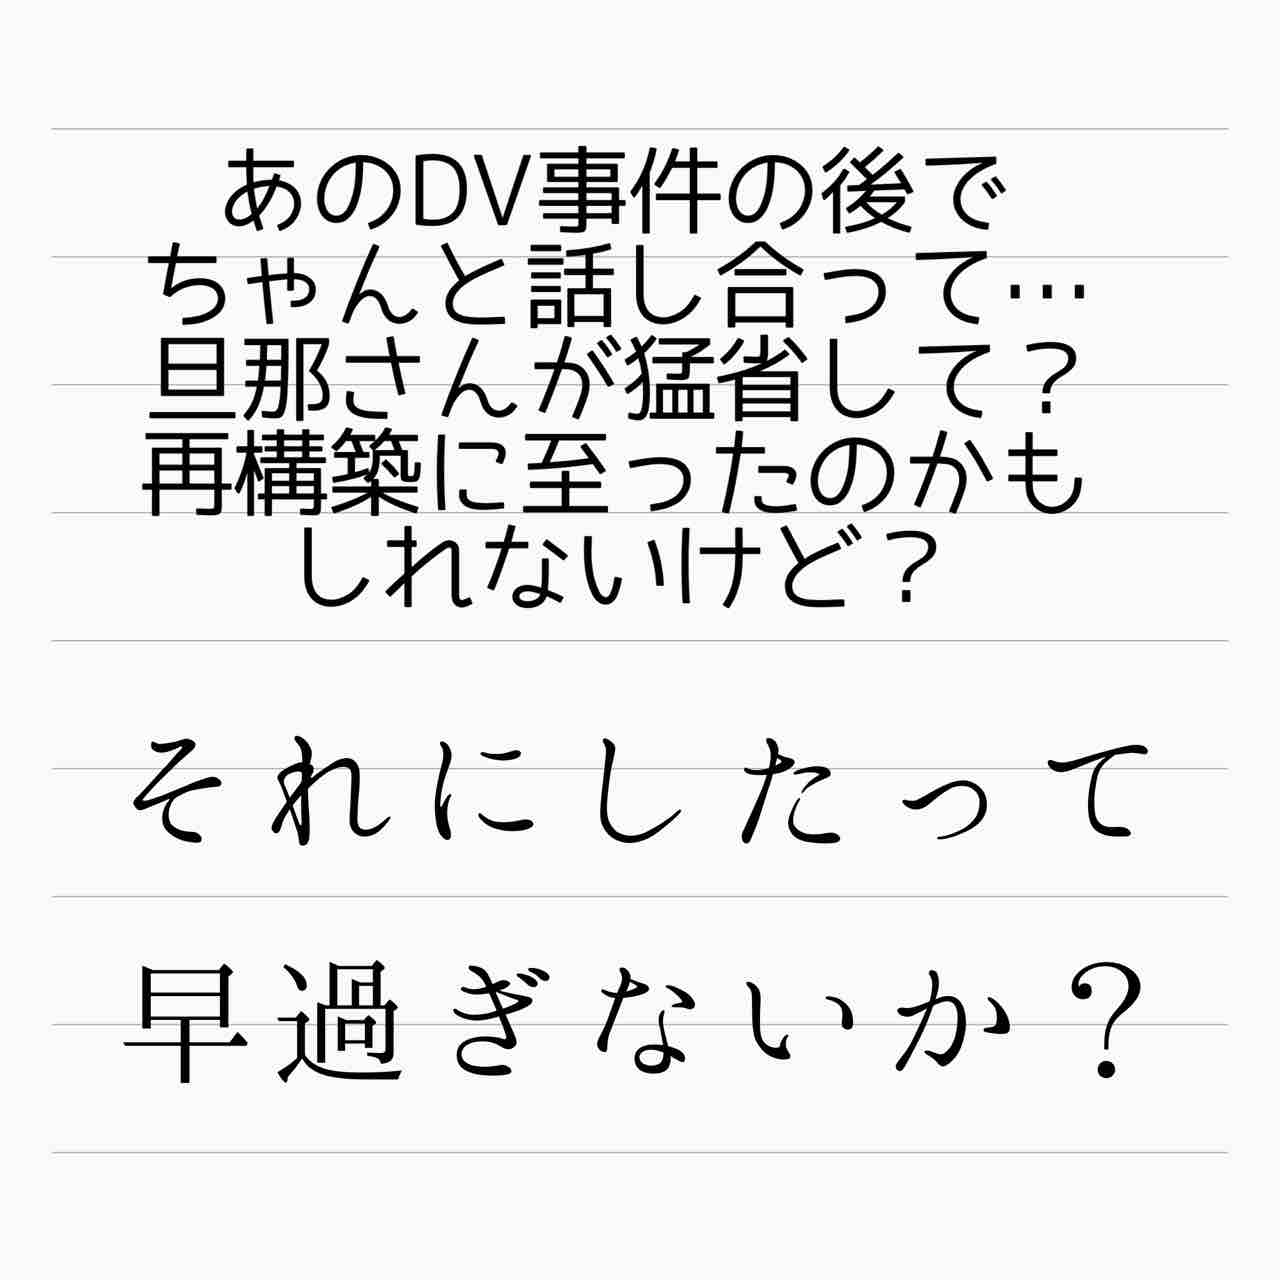 あのDV事件の後で
ちゃんと話し合って…
旦那さんが猛省して？
再構築に至ったのかも
しれないけど？
それにしたって
早過ぎないか？